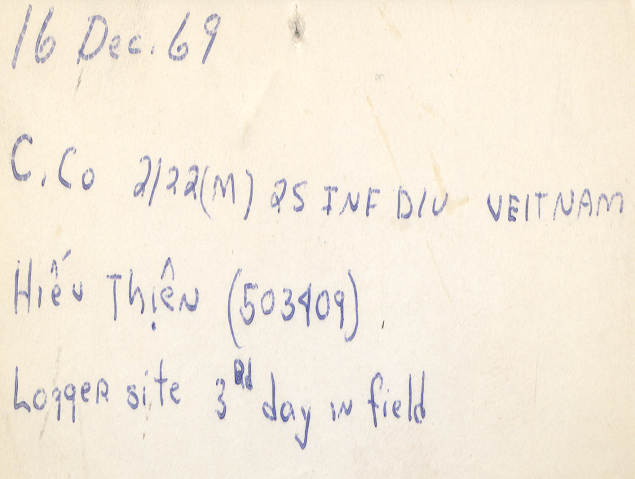 16 Dec. 69
C. Co 2/22(M) 25 INF DIV VEITNAM
Hiếu Thiện (503409)
Logger site 3rd day in field